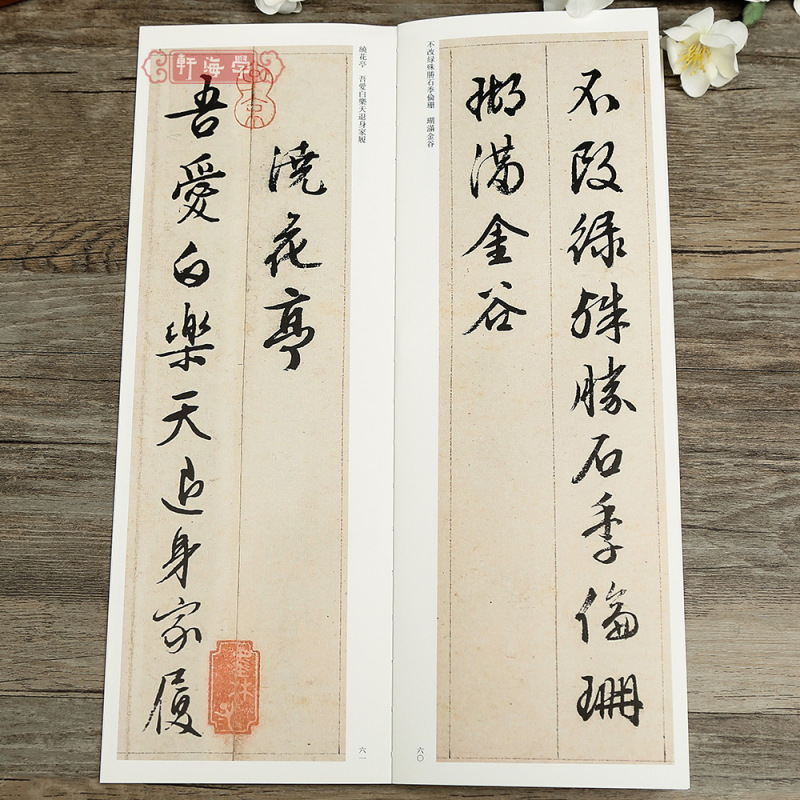 不改緑殊勝石季倫珊
瑚滿金谷
不改緑殊勝石季倫珊　瑚滿金谷
六〇
澆花亭
吾愛白樂天退身家履
澆花亭　吾愛白樂天退身家履
六一
學海軒